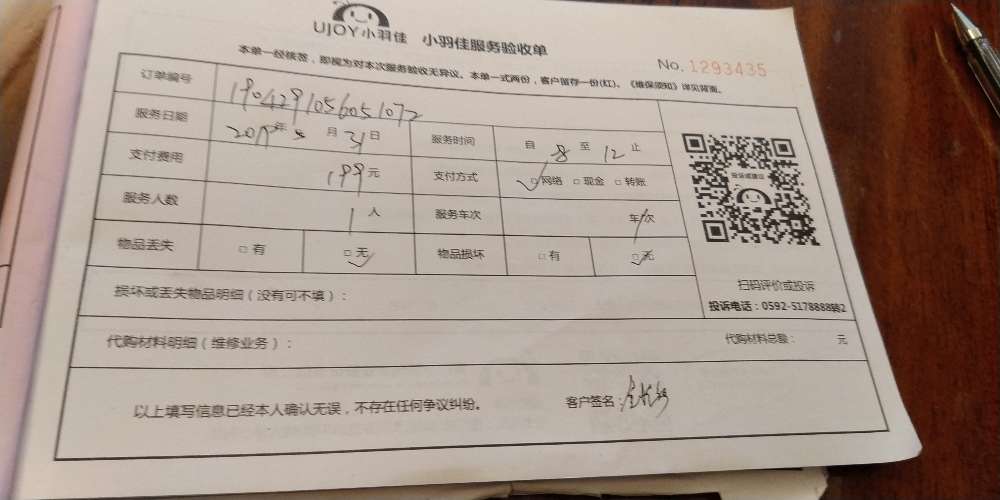 UJOY小羽佳 小羽佳服务验收单
本单一经核签，即视为对本次服务验收无异议。本单一式两份，客户留存一份(红)。《维保须知》详见背面。
No. 1293435
订单编号 1904291056051072
服务日期 2019年5月31日 服务时间 自 8 至 12 止
支付费用 199元 支付方式 □网络 □现金 □转账
服务人数 1人 服务车次 车/次
物品丢失 □有 □无 物品损坏 □有 □无
投诉或建议
扫码评价或投诉
投诉电话：0592-5178888转2
损坏或丢失物品明细（没有可不填）：
代购材料明细（维修业务）： 代购材料总额： 元
以上填写信息已经本人确认无误，不存在任何争议纠纷。 客户签名：